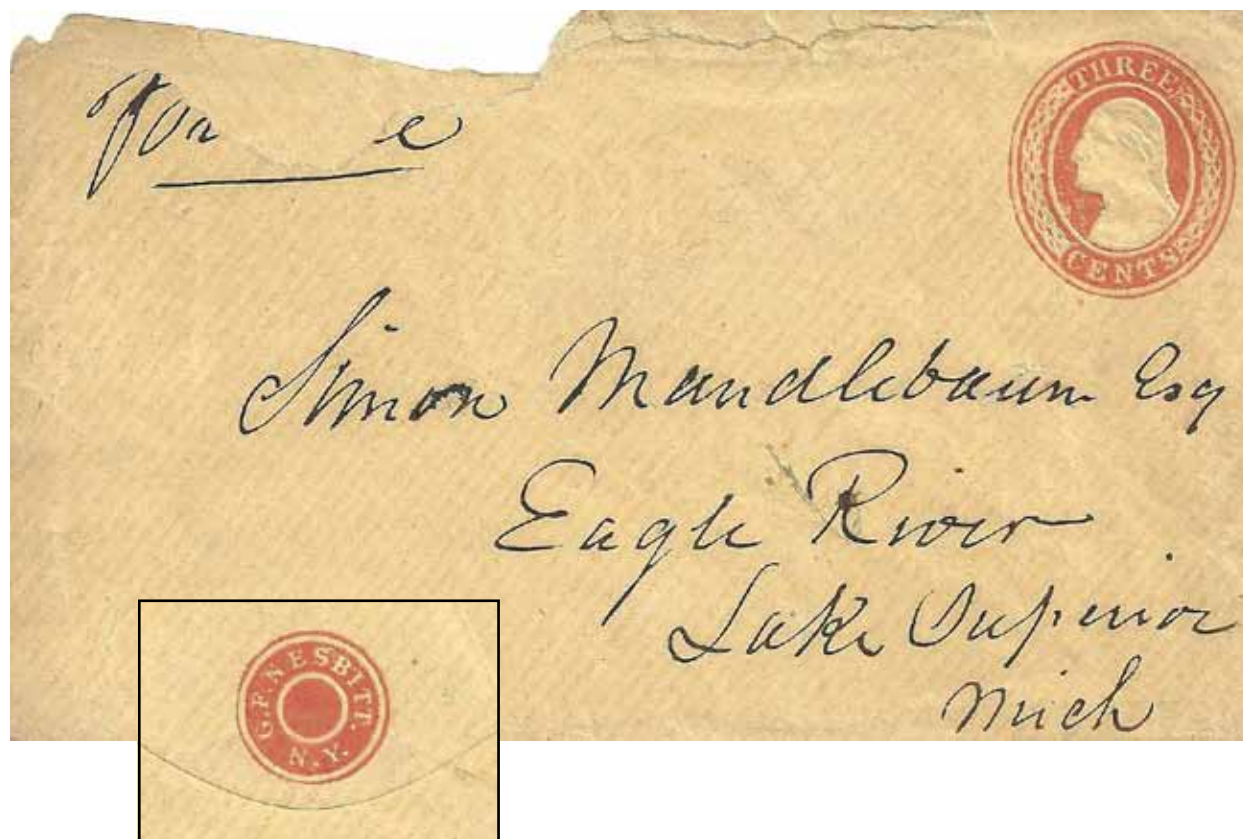 THREE
CENTS
Simon Mandlebaum Esq
Eagle River
Lake Superior
Mich
G.F. NESBITT.
N.Y.